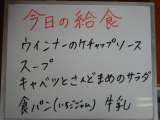 今日の給食
ウインナーのケチャップソース
スープ
キャベツとさんどまめのサラダ
食パン(いちごジャム) 牛乳